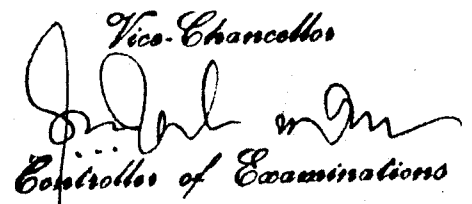 Vice-Chancellor
Controller of Examinations